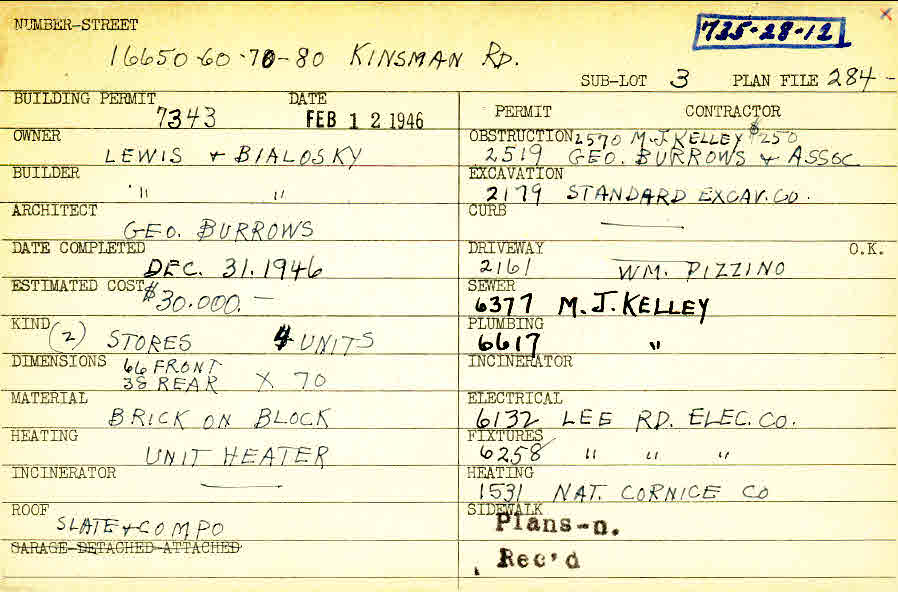 NUMBER-STREET
725-28-12
16650-60-70-80 KINSMAN RD.
SUB-LOT 3 PLAN FILE 284-
BUILDING PERMIT 7343 DATE FEB 12 1946
OWNER LEWIS + BIALOSKY
BUILDER " "
ARCHITECT GEO. BURROWS
DATE COMPLETED DEC. 31. 1946
ESTIMATED COST $30.000.—
KIND (2) STORES 4 UNITS
DIMENSIONS 66 FRONT
38 REAR X 70
MATERIAL BRICK ON BLOCK
HEATING UNIT HEATER
INCINERATOR ——
ROOF SLATE + COMPO
GARAGE-DETACHED-ATTACHED
PERMIT CONTRACTOR
OBSTRUCTION 2570 M.J. KELLEY $250
2519 GEO. BURROWS + ASSOC
EXCAVATION 2179 STANDARD EXCAV. CO.
CURB ——
DRIVEWAY O.K.
2161 WM. PIZZINO
SEWER
6377 M.J. KELLEY
PLUMBING
6617 "
INCINERATOR
ELECTRICAL
6132 LEE RD. ELEC. CO.
FIXTURES
6258 " " "
HEATING
1531 NAT. CORNICE CO
SIDEWALK
Plans-n.
Rec'd